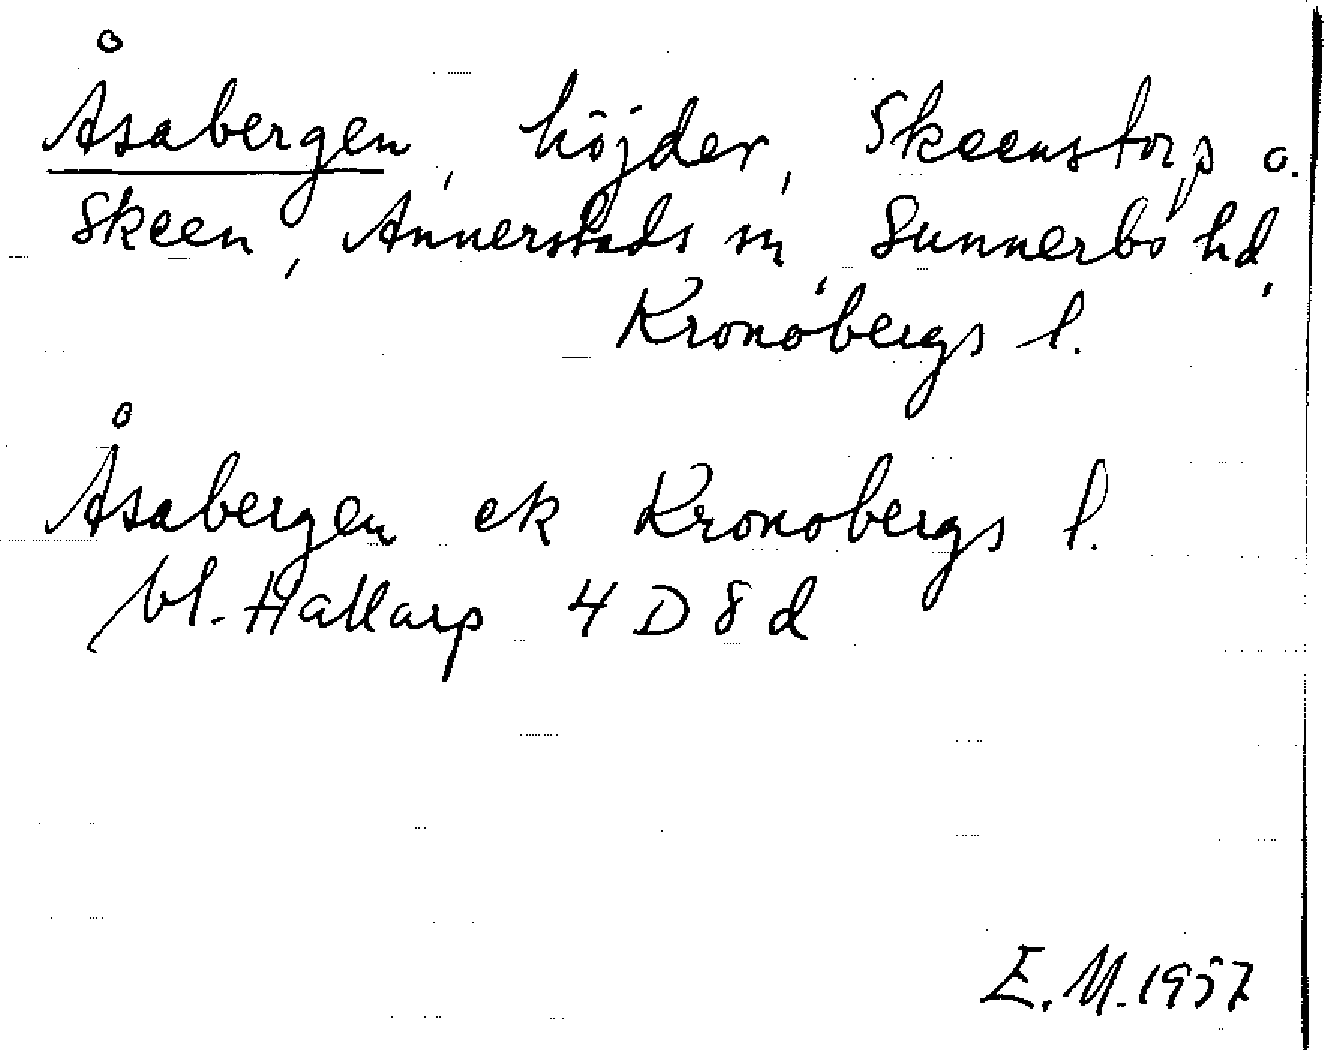 Åsabergen, höjder, Skeenstorp o.
Skeen, Annerstads sn, Sunnerbo hd,
Kronobergs l.
Åsabergen ek Kronobergs l.
bl. Hallarp 4 D 8 d
E. M. 1957